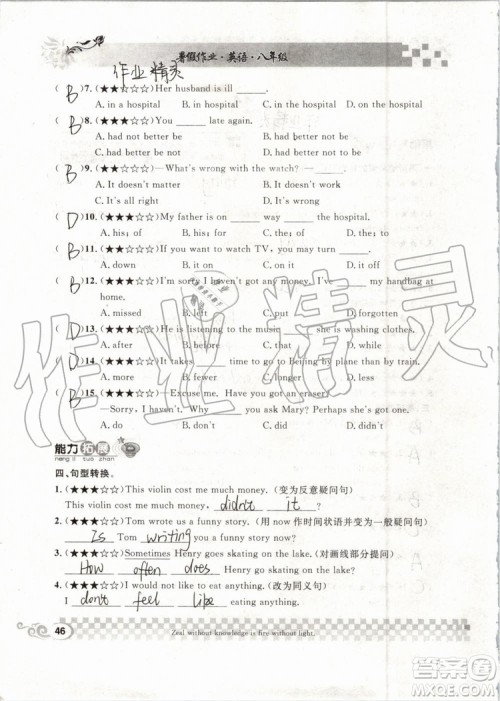 暑假作业·英语·八年级
作业精灵
( B )7. (★★☆☆☆) Her husband is ill ______.
A. in a hospital B. in hospital C. at a hospital D. at hospital
( B )8. (★★★☆☆) You ______ late again.
A. had not better be B. had better not be
C. had better be not D. had better not
( B )9. (★★☆☆☆)—What's wrong with the watch? —______.
A. It doesn't matter B. It doesn't work
C. It's all right D. It's nothing
( D )10. (★★★☆☆) My father is on ______ way ______ the hospital.
A. his; of B. him; of C. the; at D. his; to
( B )11. (★★★☆☆) If you want to watch TV, you may turn it ______.
A. down B. on C. up D. off
( B )12. (★★★☆☆) I'm sorry I haven't got any money. I've ______ my handbag at
home.
A. missed B. left C. put D. forgotten
( D )13. (★★★☆☆) He is listening to the music ______ she is washing clothes.
A. after B. if C. until D. while
( A )14. (★★★☆☆) It takes ______ time to go to Beijing by plane than by train.
A. less B. fewer C. more D. much
( B )15. (★★★☆☆)—Excuse me. Have you seen Mary?
—Sorry, I haven't. Perhaps you can ask Mary? Perhaps she has.
A. do B. don't C. did D. didn't
能力拓展
neng li tuo zhan
四、句型转换。
1. (★★★☆☆) This violin cost me much money. (变为反意疑问句)
This violin cost me much money, didn't it ?
2. (★★★☆☆) Tom wrote us a funny story. (用 now 作时间状语并变为一般疑问句)
Is Tom writing us a funny story now?
3. (★★★☆☆) Sometimes Henry goes skating on the lake. (对画线部分提问)
How often does Henry go skating on the lake?
4. (★★★☆☆) I would not like to eat anything. (改为同义句)
I don't feel like eating anything.
46
Zeal without knowledge is fire without light.
作业精灵
答案圈
MXQE.COM